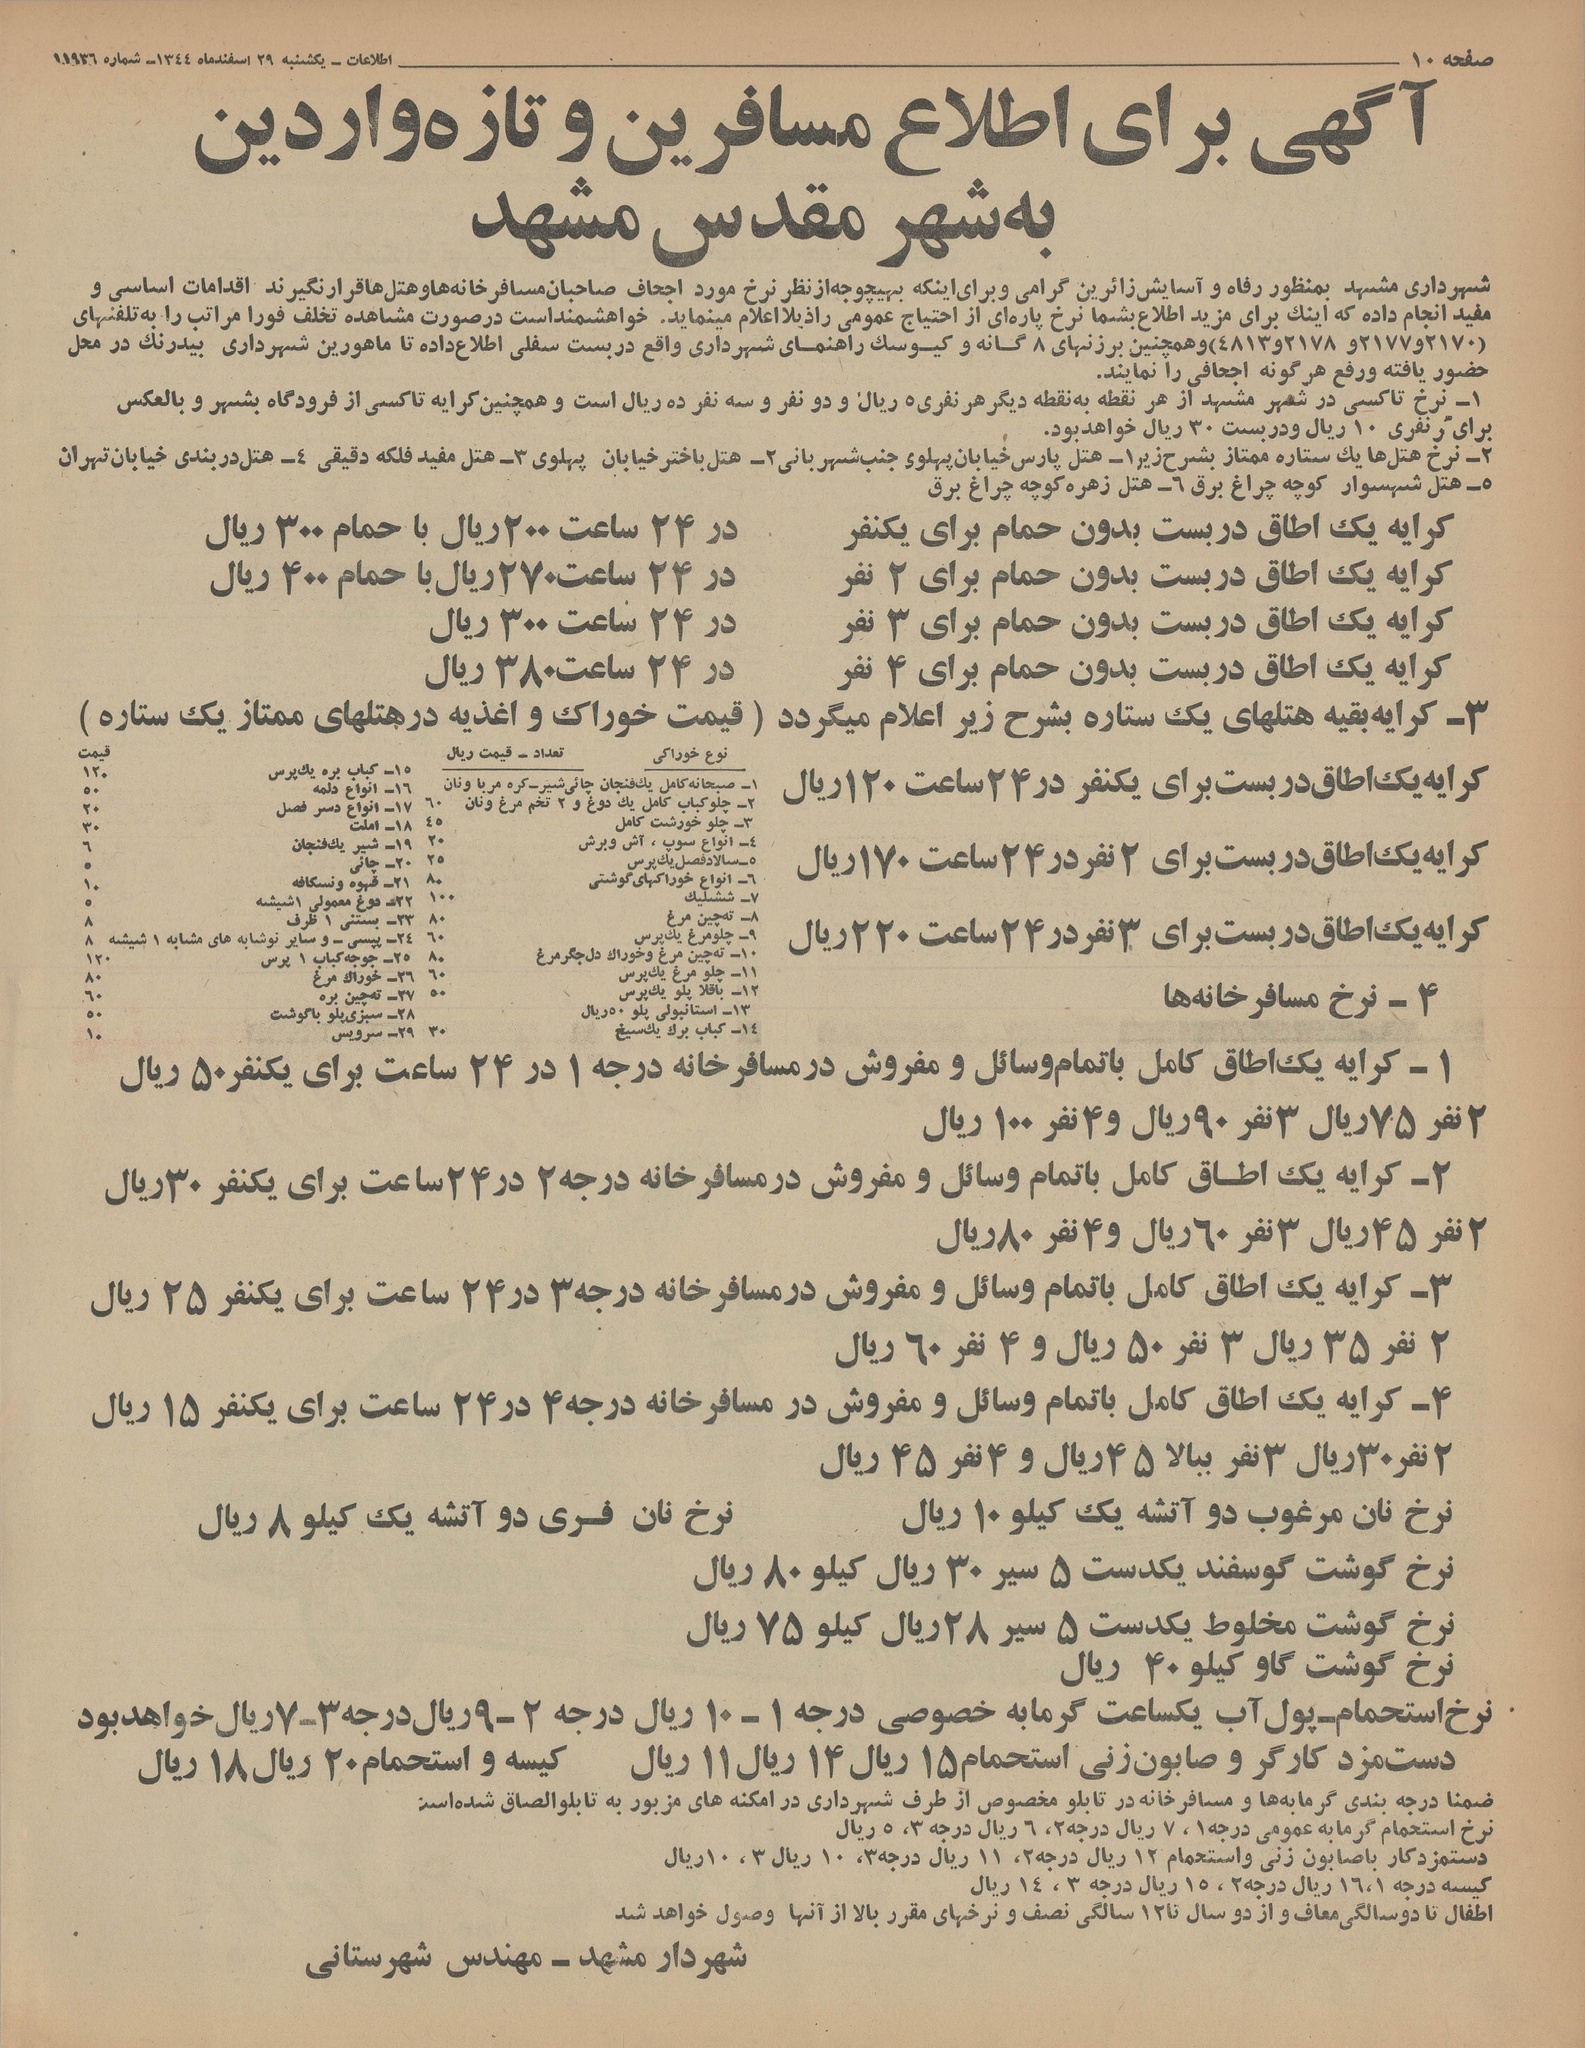 صفحه ۱۰
اطلاعات ـ یکشنبه ۲۹ اسفندماه ۱۳٤٤ـ شماره ۱۱۹۳٦
آگهی برای اطلاع مسافرین و تازه‌واردین
به‌شهر مقدس مشهد
شهرداری مشهد بمنظور رفاه و آسایش زائرین گرامی و برای اینکه بهیچوجه از نظر نرخ مورد اجحاف صاحبان مسافرخانه‌ها و هتل‌ها قرار نگیرند اقدامات اساسی و
مفید انجام داده که اینك برای مزید اطلاع بشما نرخ پاره‌ای از احتیاج عمومی را ذیلا اعلام مینماید. خواهشمند است درصورت مشاهده تخلف فورا مراتب را به تلفنهای
(۲۱۷۰و۲۱۷۷و ۲۱۷۸و٤۸۱۳) وهمچنین برزنهای ۸ گانه و کیوسك راهنمای شهرداری واقع دربست سفلی اطلاع داده تا ماهورین شهرداری بیدرنك در محل
حضور یافته ورفع هرگونه اجحافی را نمایند.
۱ـ نرخ تاکسی در شهر مشهد از هر نقطه به نقطه دیگر هر نفری ٥ ریال و دو نفر و سه نفر ده ریال است و همچنین کرایه تاکسی از فرودگاه بشهر و بالعکس
برای نفری ۱۰ ریال ودربست ۳۰ ریال خواهدبود.
۲ـ نرخ هتل‌ها یك ستاره ممتاز بشرح زیر۱ـ هتل پارس خیابان پهلوی جنب شهربانی ۲ـ هتل باختر خیابان پهلوی ۳ـ هتل مفید فلکه دقیقی ٤ـ هتل دربندی خیابان تهران
٥ـ هتل شهسوار کوچه چراغ برق ٦ـ هتل زهره کوچه چراغ برق
کرایه یك اطاق دربست بدون حمام برای یکنفر در ۲۴ ساعت ۲۰۰ریال با حمام ۳۰۰ ریال
کرایه یك اطاق دربست بدون حمام برای ۲ نفر در ۲۴ ساعت۲۷۰ریال با حمام ۴۰۰ ریال
کرایه یك اطاق دربست بدون حمام برای ۳ نفر در ۲۴ ساعت ۳۰۰ ریال
کرایه یك اطاق دربست بدون حمام برای ۴ نفر در ۲۴ ساعت۳۸۰ ریال
۳ـ کرایه بقیه هتلهای یك ستاره بشرح زیر اعلام میگردد ( قیمت خوراك و اغذیه در هتلهای ممتاز یك ستاره )
کرایه یك اطاق دربست برای یکنفر در ۲۴ساعت ۱۲۰ریال
کرایه یك اطاق دربست برای ۲ نفر در ۲۴ساعت ۱۷۰ریال
کرایه یك اطاق دربست برای ۳نفر در ۲۴ساعت ۲۲۰ریال
۴ ـ نرخ مسافرخانه‌ها
نوع خوراکی تعداد ـ قیمت ریال
۱ـ صبحانه کامل یك فنجان چائی شیر-کره مربا ونان
۲ـ چلوکباب کامل یك دوغ و ۲ تخم مرغ ونان ٦۰
۳ـ چلو خورشت کامل ٤٥
٤ـ انواع سوپ ، آش وبرش ۲۰
٥ـ سالاد فصل یك پرس ۲٥
٦ـ انواع خوراکهای گوشتی ۸۰
۷ـ ششلیك ۱۰۰
۸ـ ته‌چین مرغ ۸۰
۹ـ چلومرغ یك پرس ٦۰
۱۰ـ ته‌چین مرغ وخوراك دل جگر مرغ ۸۰
۱۱ـ چلو مرغ یك پرس ٦۰
۱۲ـ باقلا پلو یك پرس ٥۰
۱۳ـ استانبولی پلو ٥۰ریال
۱٤ـ کباب برك یك سیخ ۳۰
قیمت
۱٥ـ کباب بره یك پرس ۱۲۰
۱٦ـ انواع دلمه ٥۰
۱۷ـ انواع دسر فصل ۲۰
۱۸ـ املت ۳۰
۱۹ـ شیر یك فنجان ٦
۲۰ـ چائی ٥
۲۱ـ قهوه ونسکافه ۱۰
۲۲ـ دوغ معمولی ۱شیشه ٥
۲۳ـ بستنی ۱ ظرف ۸
۲٤ـ پپسی ـ و سایر نوشابه های مشابه ۱ شیشه ۸
۲٥ـ جوجه کباب ۱ پرس ۱۲۰
۲٦ـ خوراك مرغ ۸۰
۲۷ـ ته‌چین بره ٦۰
۲۸ـ سبزی پلو باگوشت ٥۰
۲۹ـ سرویس ۱۰
۱ ـ کرایه یك اطاق کامل باتمام وسائل و مفروش در مسافرخانه درجه ۱ در ۲۴ ساعت برای یکنفر۵۰ ریال
۲نفر ۷۵ریال ۳نفر ۹۰ریال و۴نفر ۱۰۰ ریال
۲ـ کرایه یك اطـاق کامل باتمام وسائل و مفروش در مسافرخانه درجه۲ در۲۴ساعت برای یکنفر ۳۰ریال
۲نفر ۴۵ریال ۳نفر ۶۰ریال و۴نفر ۸۰ریال
۳ـ کرایه یك اطاق کامل باتمام وسائل و مفروش در مسافرخانه درجه۳ در۲۴ ساعت برای یکنفر ۲۵ ریال
۲ نفر ۳۵ ریال ۳ نفر ۵۰ ریال و ۴ نفر ۶۰ ریال
۴ـ کرایه یك اطاق کامل باتمام وسائل و مفروش در مسافرخانه درجه۴ در۲۴ ساعت برای یکنفر ۱۵ ریال
۲نفر۳۰ریال ۳نفر ببالا ۴۵ریال و ۴نفر ۴۵ ریال
نرخ نان مرغوب دو آتشه یك کیلو ۱۰ ریال نرخ نان فـری دو آتشه یك کیلو ۸ ریال
نرخ گوشت گوسفند یکدست ۵ سیر ۳۰ ریال کیلو ۸۰ ریال
نرخ گوشت مخلوط یکدست ۵ سیر ۲۸ریال کیلو ۷۵ ریال
نرخ گوشت گاو کیلو ۴۰ ریال
نرخ استحمام-پول آب یکساعت گرمابه خصوصی درجه ۱ ـ ۱۰ ریال درجه ۲ ـ۹ریال درجه۳ـ۷ریال خواهدبود
دست مزد کارگر و صابون زنی استحمام۱۵ ریال ۱۴ ریال ۱۱ ریال کیسه و استحمام۲۰ ریال ۱۸ ریال
ضمنا درجه بندی گرمابه‌ها و مسافرخانه در تابلو مخصوص از طرف شهرداری در امکنه های مزبور به تابلو الصاق شده است
نرخ استحمام گرمابه عمومی درجه۱ ، ۷ ریال درجه۲، ٦ ریال درجه ۳، ٥ ریال
دستمزدکار باصابون زنی واستحمام ۱۲ ریال درجه۲، ۱۱ ریال درجه۳، ۱۰ ریال ۳ ، ۱۰ریال
کیسه درجه ۱،۱٦ ریال درجه۲ ، ۱٥ ریال درجه ۳ ، ۱٤ ریال
اطفال تا دوسالگی معاف و از دو سال تا۱۲ سالگی نصف و نرخهای مقرر بالا از آنها وصول خواهد شد
شهردار مشهد ـ مهندس شهرستانی